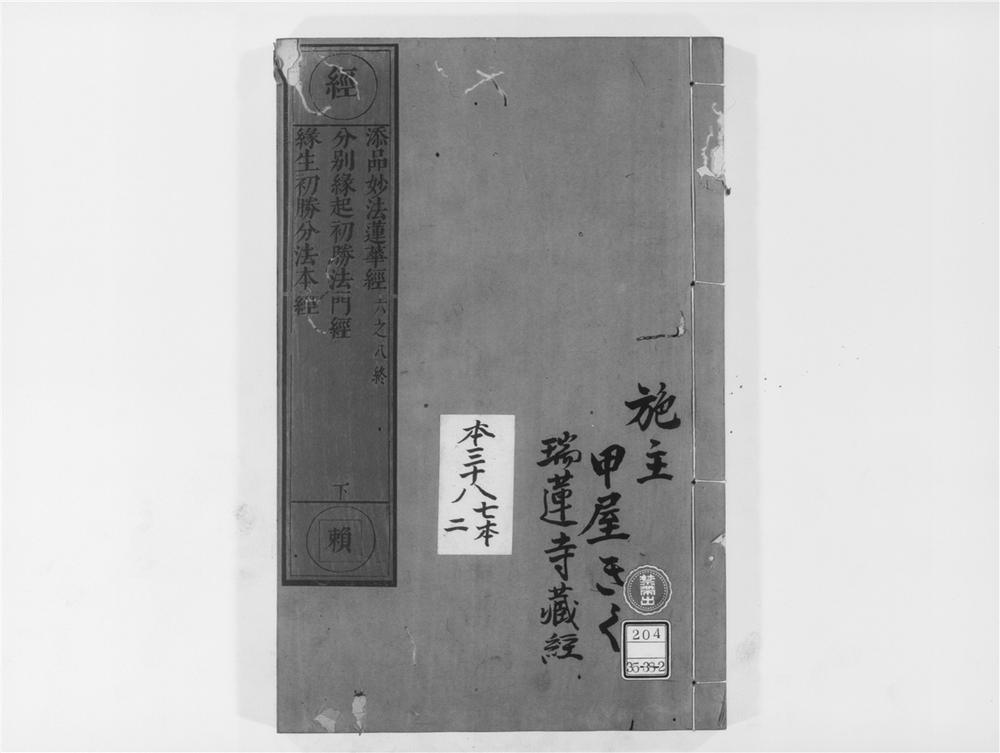 經
添品妙法蓮華經 六之八終
分别緣起初勝法門經
緣生初勝分法本經
下
賴
施主
甲屋きく
瑞蓮寺藏経
本三十八
七本
二
禁帶出
204
35-38-2